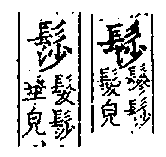 髿
髿
髮皃
髿
髮髿
垂皃